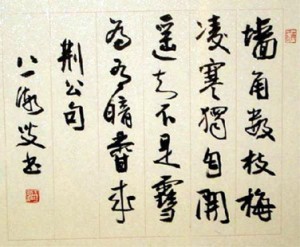 墙角数枝梅
凌寒独自开
遥知不是雪
为有暗香来
荆公句
八一海叟书